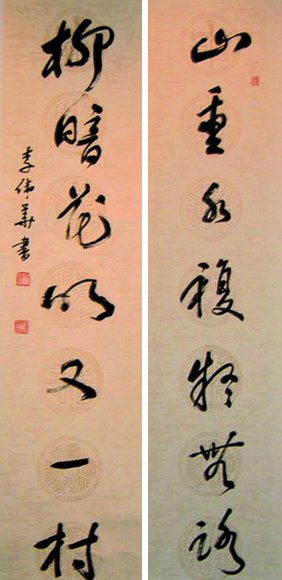 山重水複疑無路
柳暗花明又一村
李偉華書